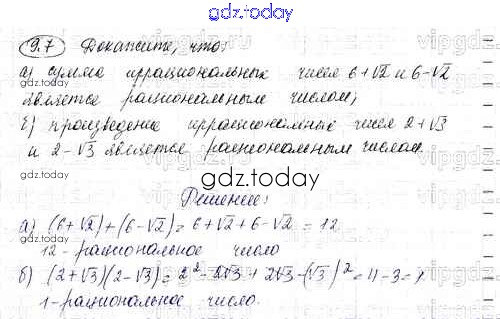 gdz.today
9.7 Докажите, что:
а) сумма иррациональных чисел 6+√2 и 6-√2
является рациональным числом;
б) произведение иррациональных чисел 2+√3
и 2-√3 является рациональным числом.
gdz.today
Решение:
а) (6+√2)+(6-√2)=6+√2+6-√2=12
12-рациональное число
б) (2+√3)(2-√3)=2²-2√3+2√3-(√3)²=4-3=1.
1-рациональное число.
gdz.today